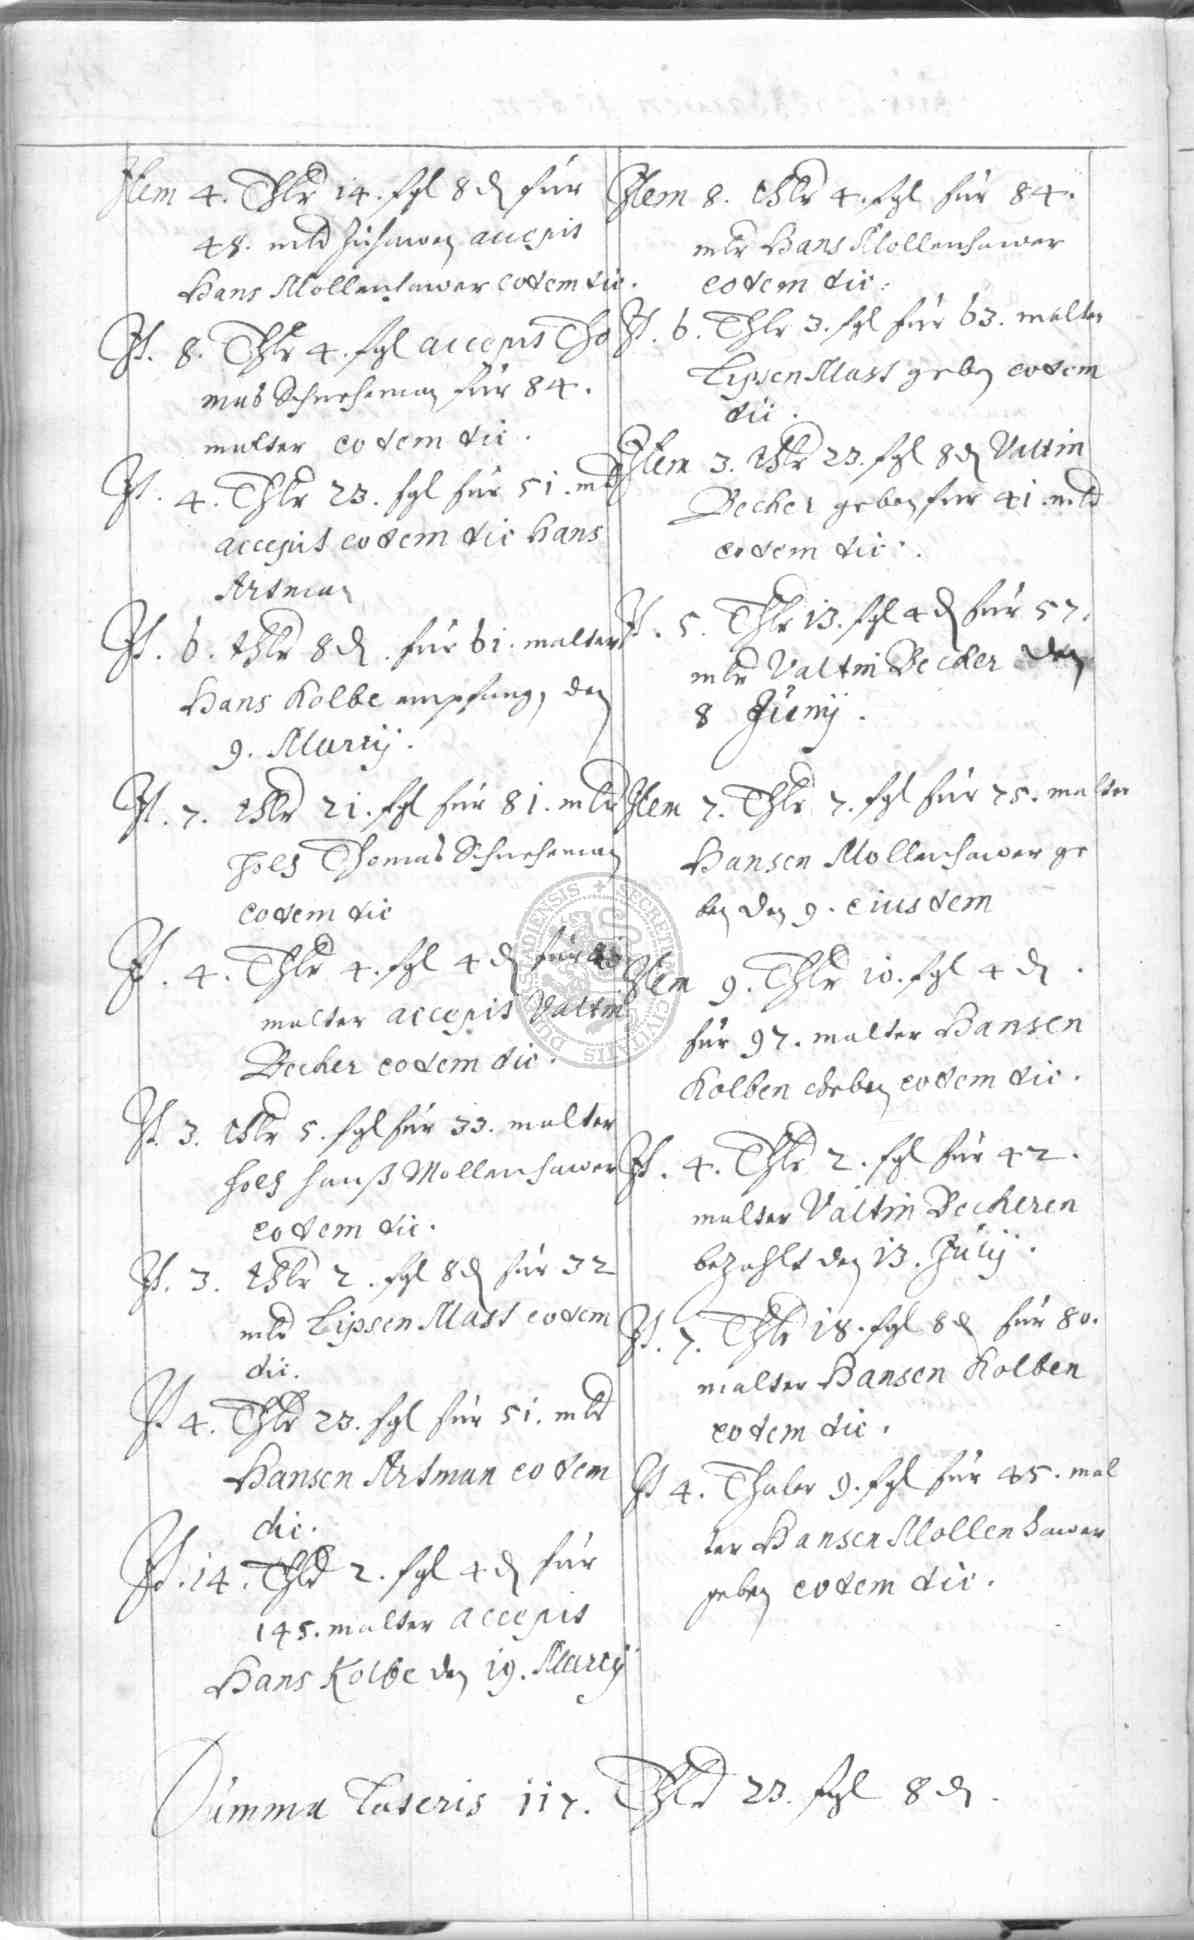 Item 4. Thlr 14. sgl 8 d für
48. mld zuhawen accepit
Hans Mollenhawer eodem die.
It. 8. Thlr 4. sgl accepit Tho
mas Schneheman für 84.
malter eodem die.
It. 4. Thlr 23. sgl für 51. mld
accepit eodem die Hans
Artman
It. 6. thlr 8 d. für 61. malter
Hans Kolbe empfangen den
9. Martij.
It. 7. thlr 21. sgl für 81. mld
holtz Thomas Schneheman
eodem die
It. 4. Thlr 4. sgl 4 d für
malter accepit Valtin
Becher eodem die.
It. 3. thlr 5. sgl für 33. malter
holtz hanß Mollenhawer
eodem die.
It. 3. thlr 2. sgl 8 d für 32
mld Lipsen Mast eodem
die.
It 4. Thlr 23. sgl für 51. mld
Hansen Artman eodem
die.
It. 14. Thlr 2. sgl 4 d für
145. malter accepit
Hans Kolbe den 19. Martij
Item 8. thlr 4. sgl für 84.
mlr Hans Mollenhawer
eodem die.
It. 6. Thlr 3. sgl für 63. malter
Lipsen Mast geben eodem
die.
Item 3. thlr 23. sgl 8 d Valtin
Becher geben für 41. mld
eodem die.
It. 5. Thlr 13. sgl 4 d für 57.
mlr Valtin Becker den
8 Junij.
Item 7. Thlr 7. sgl für 75. malter
Hansen Mollenhawer ge
ben den 9. eiusdem
Item 9. Thlr 10. sgl 4 d.
für 97. malter Hansen
Kolben geben eodem die.
It. 4. Thlr 2. sgl für 42.
malter Valtin Becheren
bezahlt den 13. Julij.
It. 7. Thlr 18. sgl 8 d für 80.
malter Hansen Kolben
eodem die.
It 4. Thaler 9. sgl für 45. mal
ter Hansen Mollenhawer
geben eodem die.
Summa Lateris 117. Thlr 23. sgl 8 d.
SECRETUM CIVITATIS